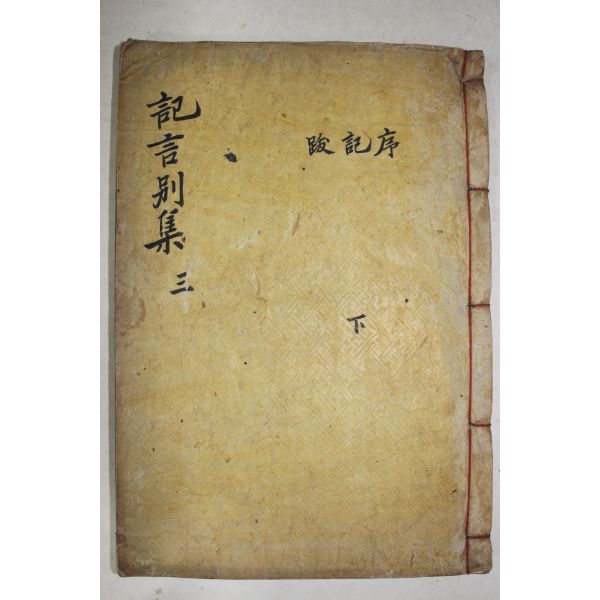 記言別集 三
序記跋
下